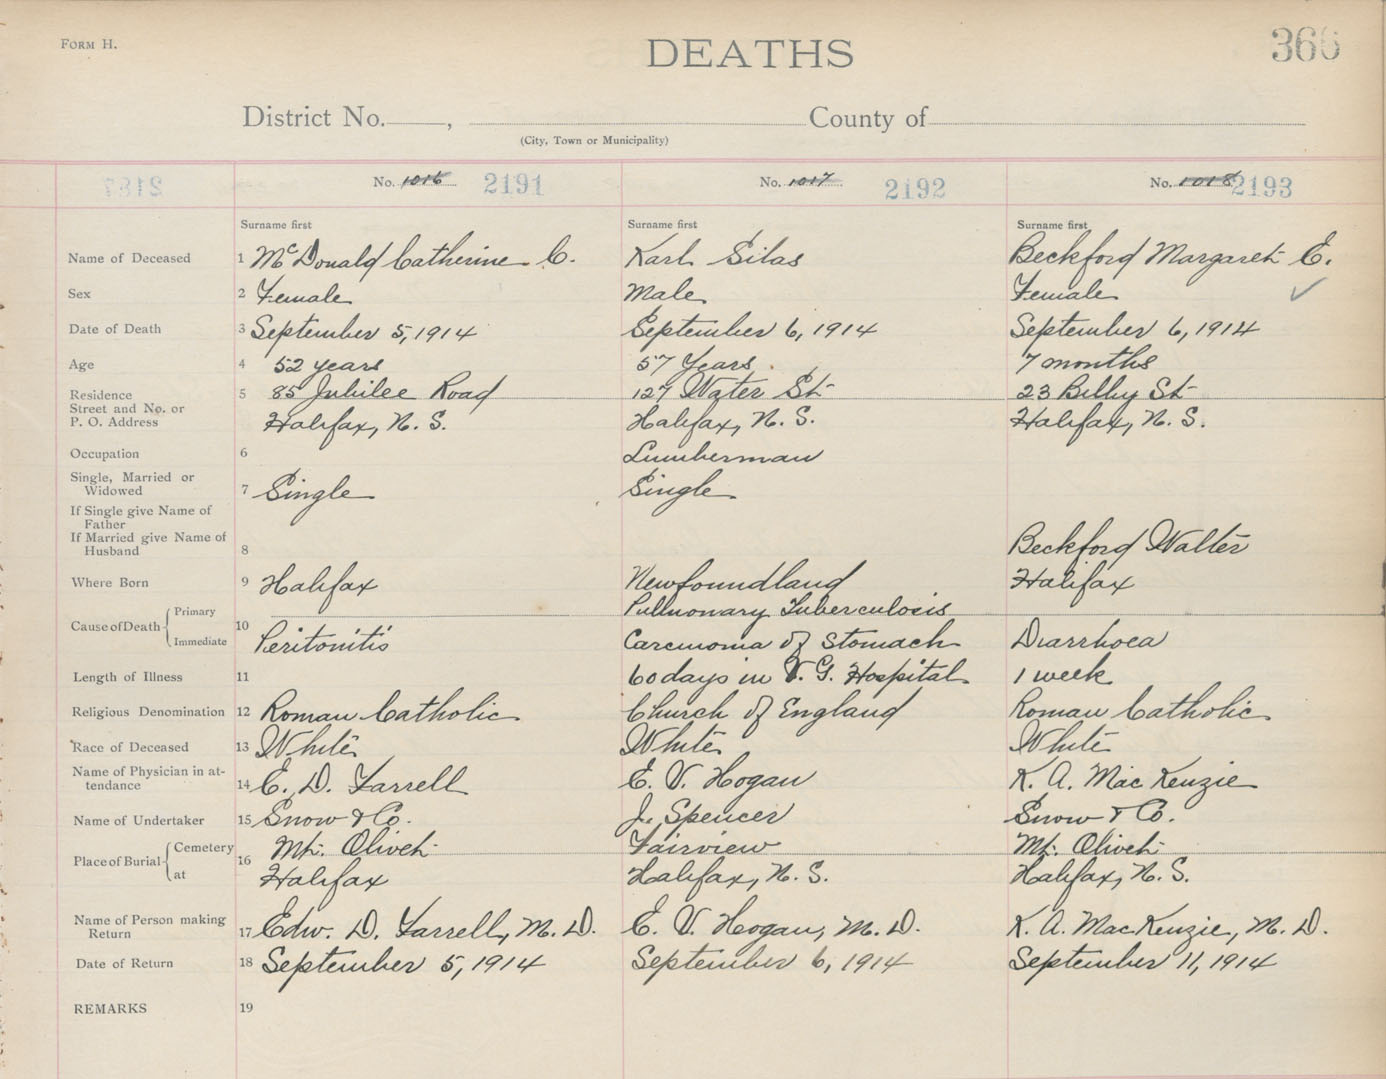 FORM H.
DEATHS
366
District No. , County of
(City, Town or Municipality)
No. 1016 2191 No. 1017 2192 No. 1018 2193
Surname first Surname first Surname first
Name of Deceased 1 McDonald Catherine C. Karl Silas Beckford Margaret E.
Sex 2 Female Male Female ✓
Date of Death 3 September 5, 1914 September 6, 1914 September 6, 1914
Age 4 52 years 57 Years 7 months
Residence 5 85 Jubilee Road 127 Water St 23 Bilby St
Street and No. or
P. O. Address Halifax, N. S. Halifax, N. S. Halifax, N. S.
Occupation 6 Lumberman
Single, Married or
Widowed 7 Single Single
If Single give Name of
Father
If Married give Name of
Husband 8 Beckford Walter
Where Born 9 Halifax Newfoundland Halifax
Cause of Death { Primary Pulmonary Tuberculosis
10 Immediate Peritonitis Carcinoma of Stomach Diarrhoea
Length of Illness 11 60 days in V. G. Hospital 1 week
Religious Denomination 12 Roman Catholic Church of England Roman Catholic
Race of Deceased 13 White White White
Name of Physician in at-
tendance 14 E. D. Farrell E. V. Hogan K. A. MacKenzie
Name of Undertaker 15 Snow & Co. J. Spencer Snow & Co.
Place of Burial { Cemetery Mt. Olivet Fairview Mt. Olivet
16 at Halifax Halifax, N. S. Halifax, N. S.
Name of Person making
Return 17 Edw. D. Farrell, M. D. E. V. Hogan, M. D. K. A. MacKenzie, M. D.
Date of Return 18 September 5, 1914 September 6, 1914 September 11, 1914
REMARKS 19